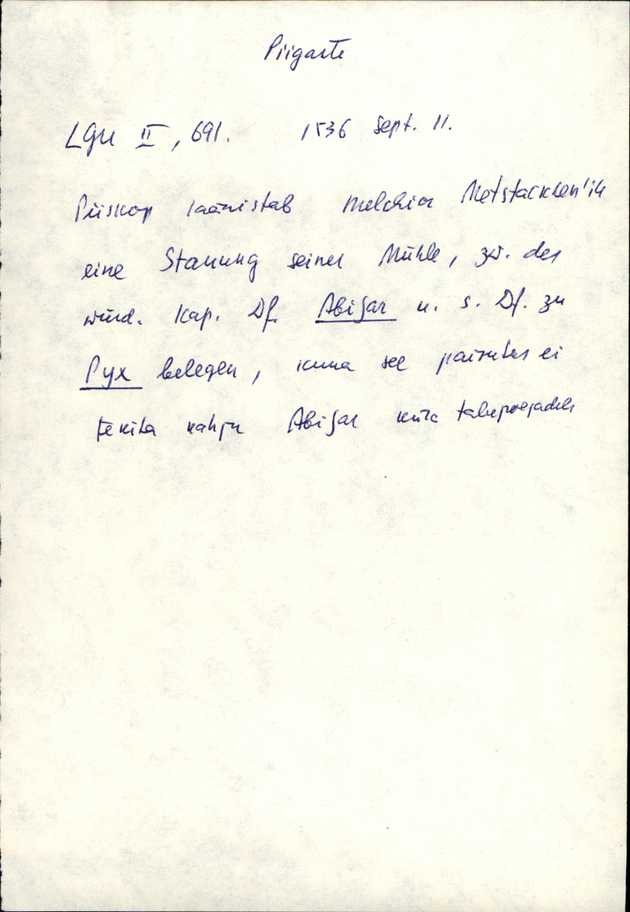 Piigaste
LGU II, 691. 1536 Sept. 11.
Piiskop kaänistab Melchior Metstacken'ile
eine Stauung seiner Mühle, zw. des
würd. Kap. Df. Abijar u. s. Df. zu
Pyx belegen, kuna see paisutus ei
tekita kahju Abijar küla talupoegadele